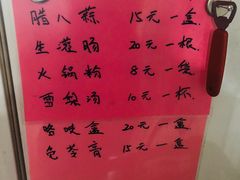 腊八蒜 15元一盒
生灌肠 20元一根
火锅粉 8元一袋
雪梨汤 10元一杯
咯吱盒 20元一盒
龟苓膏 15元一盒